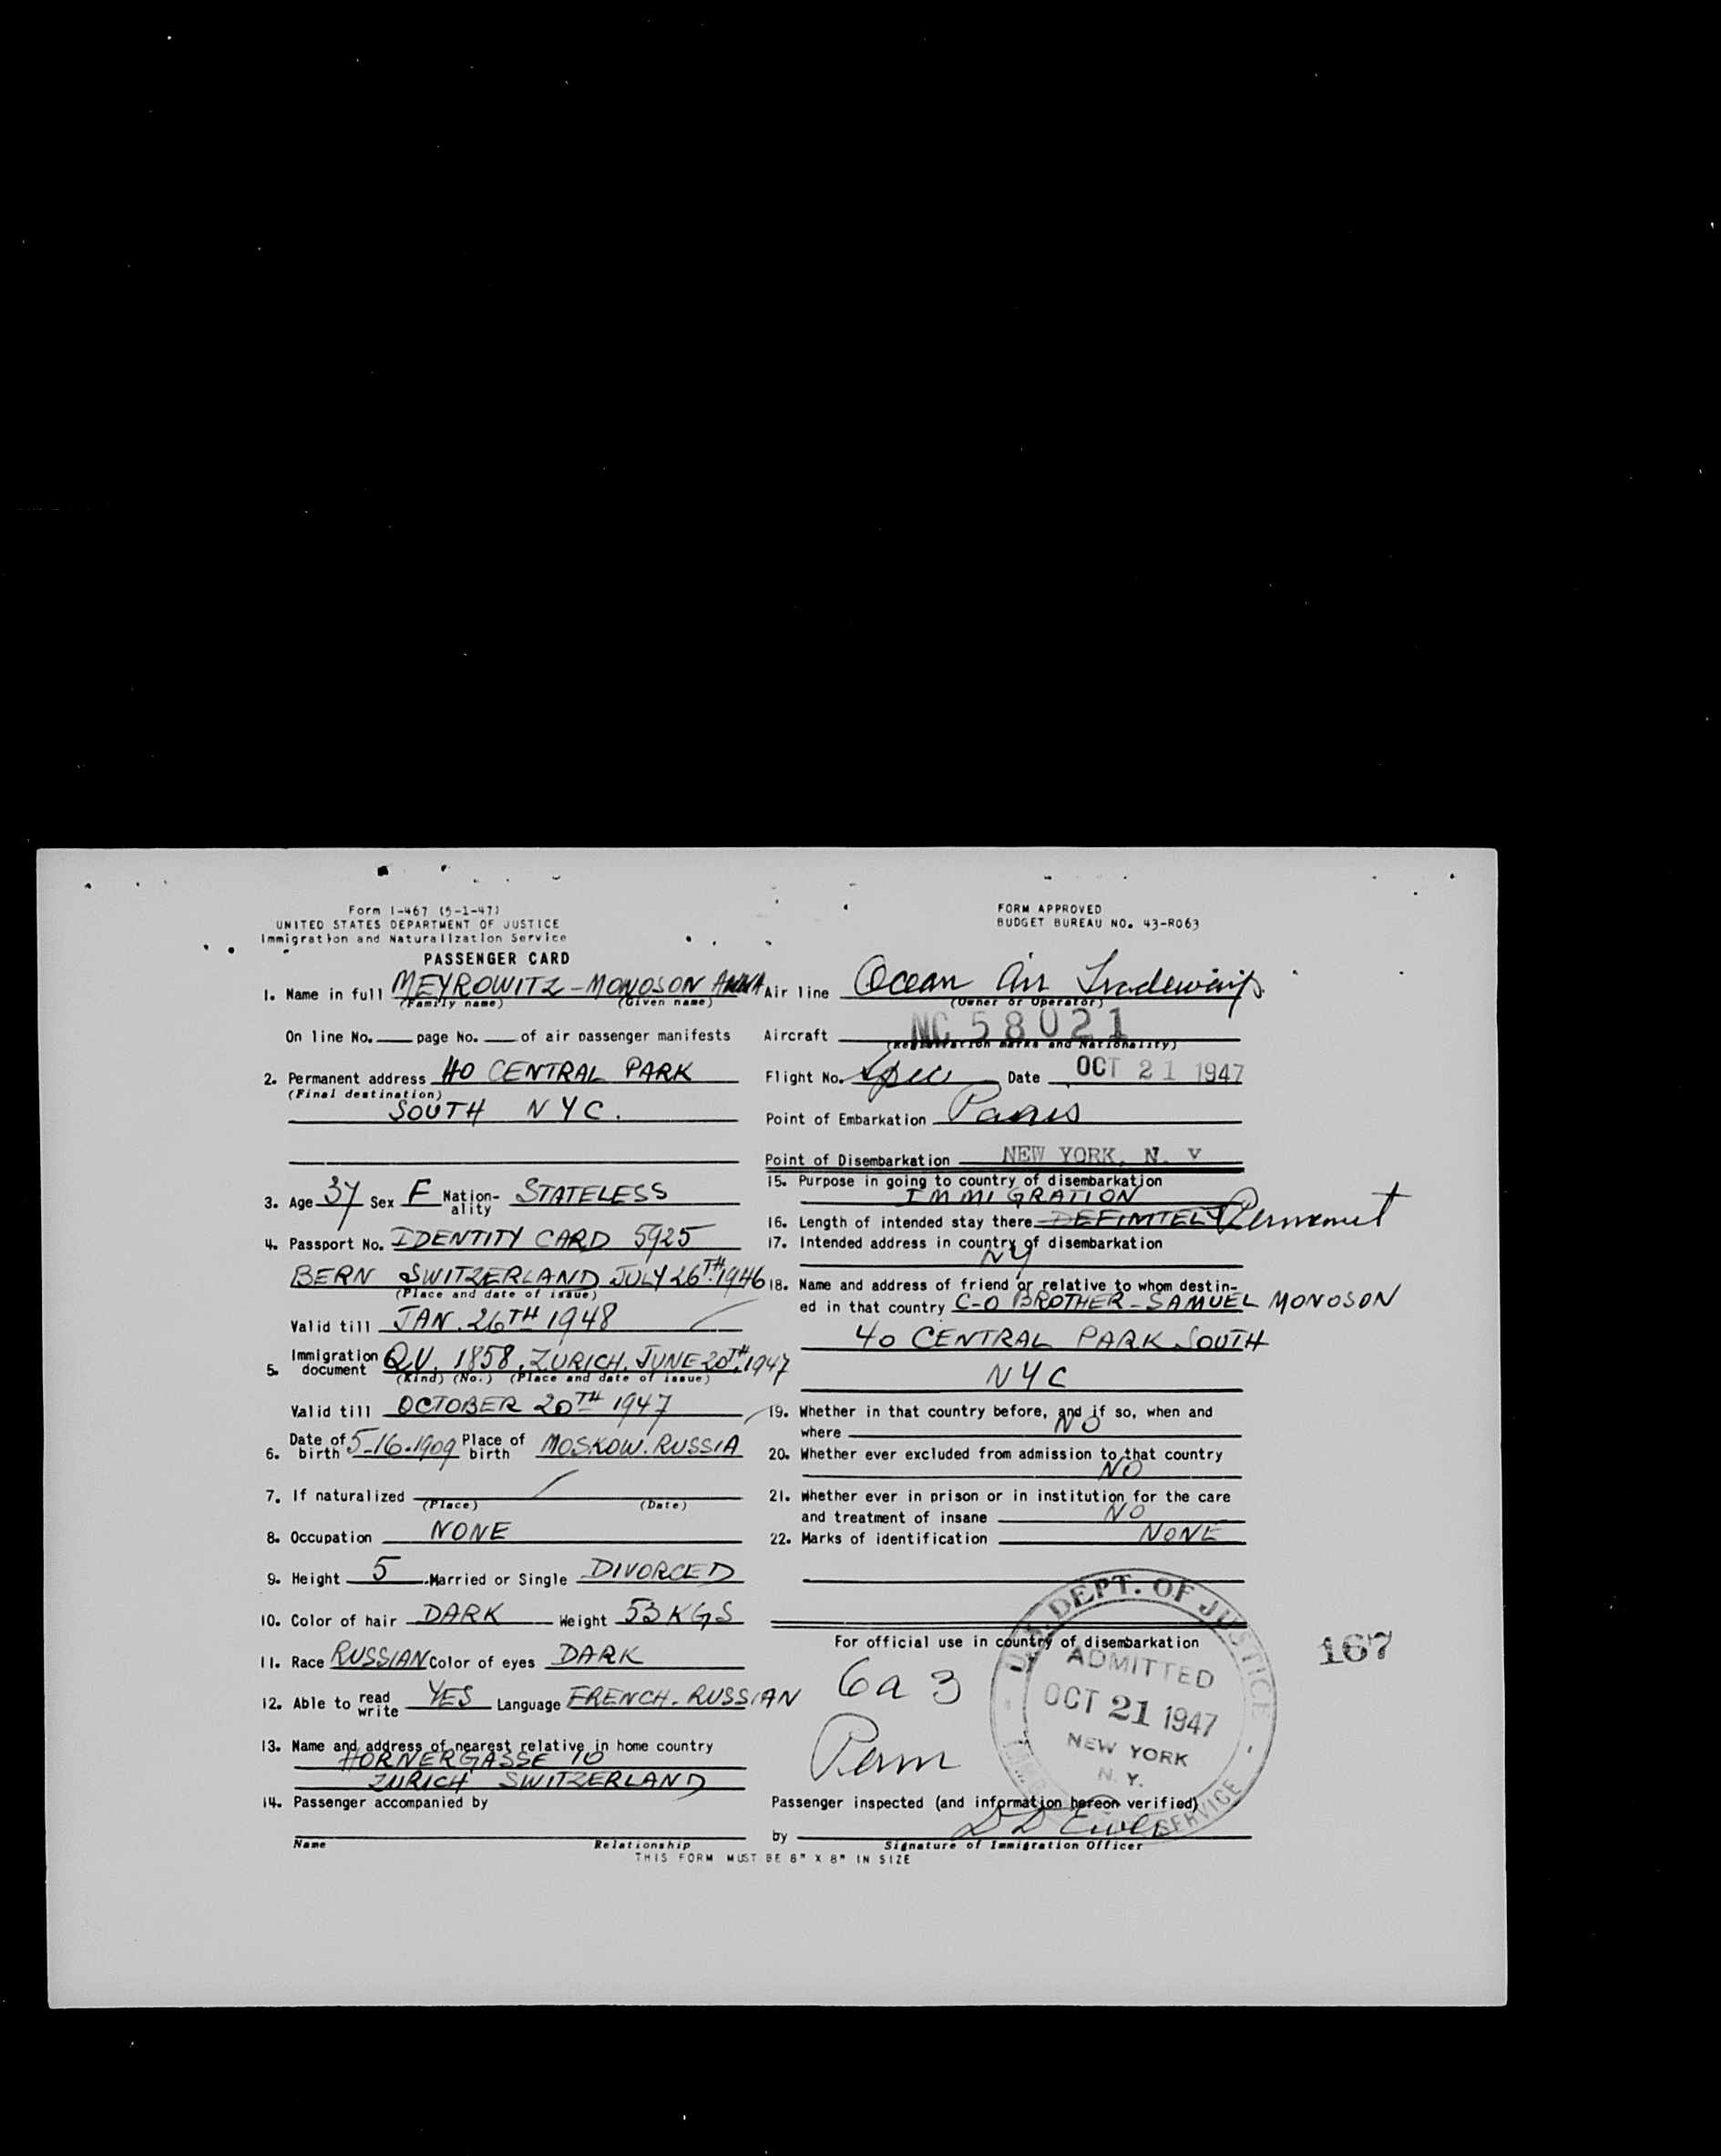 Form I-467 (5-1-47)
UNITED STATES DEPARTMENT OF JUSTICE
Immigration and Naturalization Service
PASSENGER CARD
FORM APPROVED
BUDGET BUREAU NO. 43-R063
1. Name in full MEYROWITZ-MONOSON ANNA
(Family name) (Given name)
On line No. page No. of air passenger manifests
2. Permanent address 40 CENTRAL PARK
(Final destination)
SOUTH NYC.
3. Age 37 Sex F Nation-ality STATELESS
4. Passport No. IDENTITY CARD 5925
BERN SWITZERLAND JULY 26TH 1946
(Place and date of issue)
Valid till JAN. 26TH 1948
5. Immigration document Q.V. 1858, ZURICH. JUNE 20TH 1947
(Kind) (No.) (Place and date of issue)
Valid till OCTOBER 20TH 1947
6. Date of birth 5-16-1909 Place of birth MOSKOW. RUSSIA
7. If naturalized
(Place) (Date)
8. Occupation NONE
9. Height 5 Married or Single DIVORCED
10. Color of hair DARK Weight 53 KGS
11. Race RUSSIAN Color of eyes DARK
12. Able to read write YES Language FRENCH. RUSSIAN
13. Name and address of nearest relative in home country
HORNERGASSE 10
ZURICH SWITZERLAND
14. Passenger accompanied by
Name Relationship
Air line Ocean Air Tradeways
(Owner or Operator)
Aircraft NC 58021
(Registration marks and Nationality)
Flight No. Spec Date OCT 21 1947
Point of Embarkation Paris
Point of Disembarkation NEW YORK, N. Y
15. Purpose in going to country of disembarkation
IMMIGRATION
16. Length of intended stay there DEFINITELY Permanent
17. Intended address in country of disembarkation
NY
18. Name and address of friend or relative to whom destin-
ed in that country C-O BROTHER-SAMUEL MONOSON
40 CENTRAL PARK SOUTH
NYC
19. Whether in that country before, and if so, when and
where NO
20. Whether ever excluded from admission to that country
NO
21. Whether ever in prison or in institution for the care
and treatment of insane NO
22. Marks of identification NONE
For official use in country of disembarkation
6a 3
Perm
U.S. DEPT. OF JUSTICE
ADMITTED
OCT 21 1947
NEW YORK
N. Y.
SERVICE
167
Passenger inspected (and information hereon verified)
by
Signature of Immigration Officer
THIS FORM MUST BE 8" X 8" IN SIZE